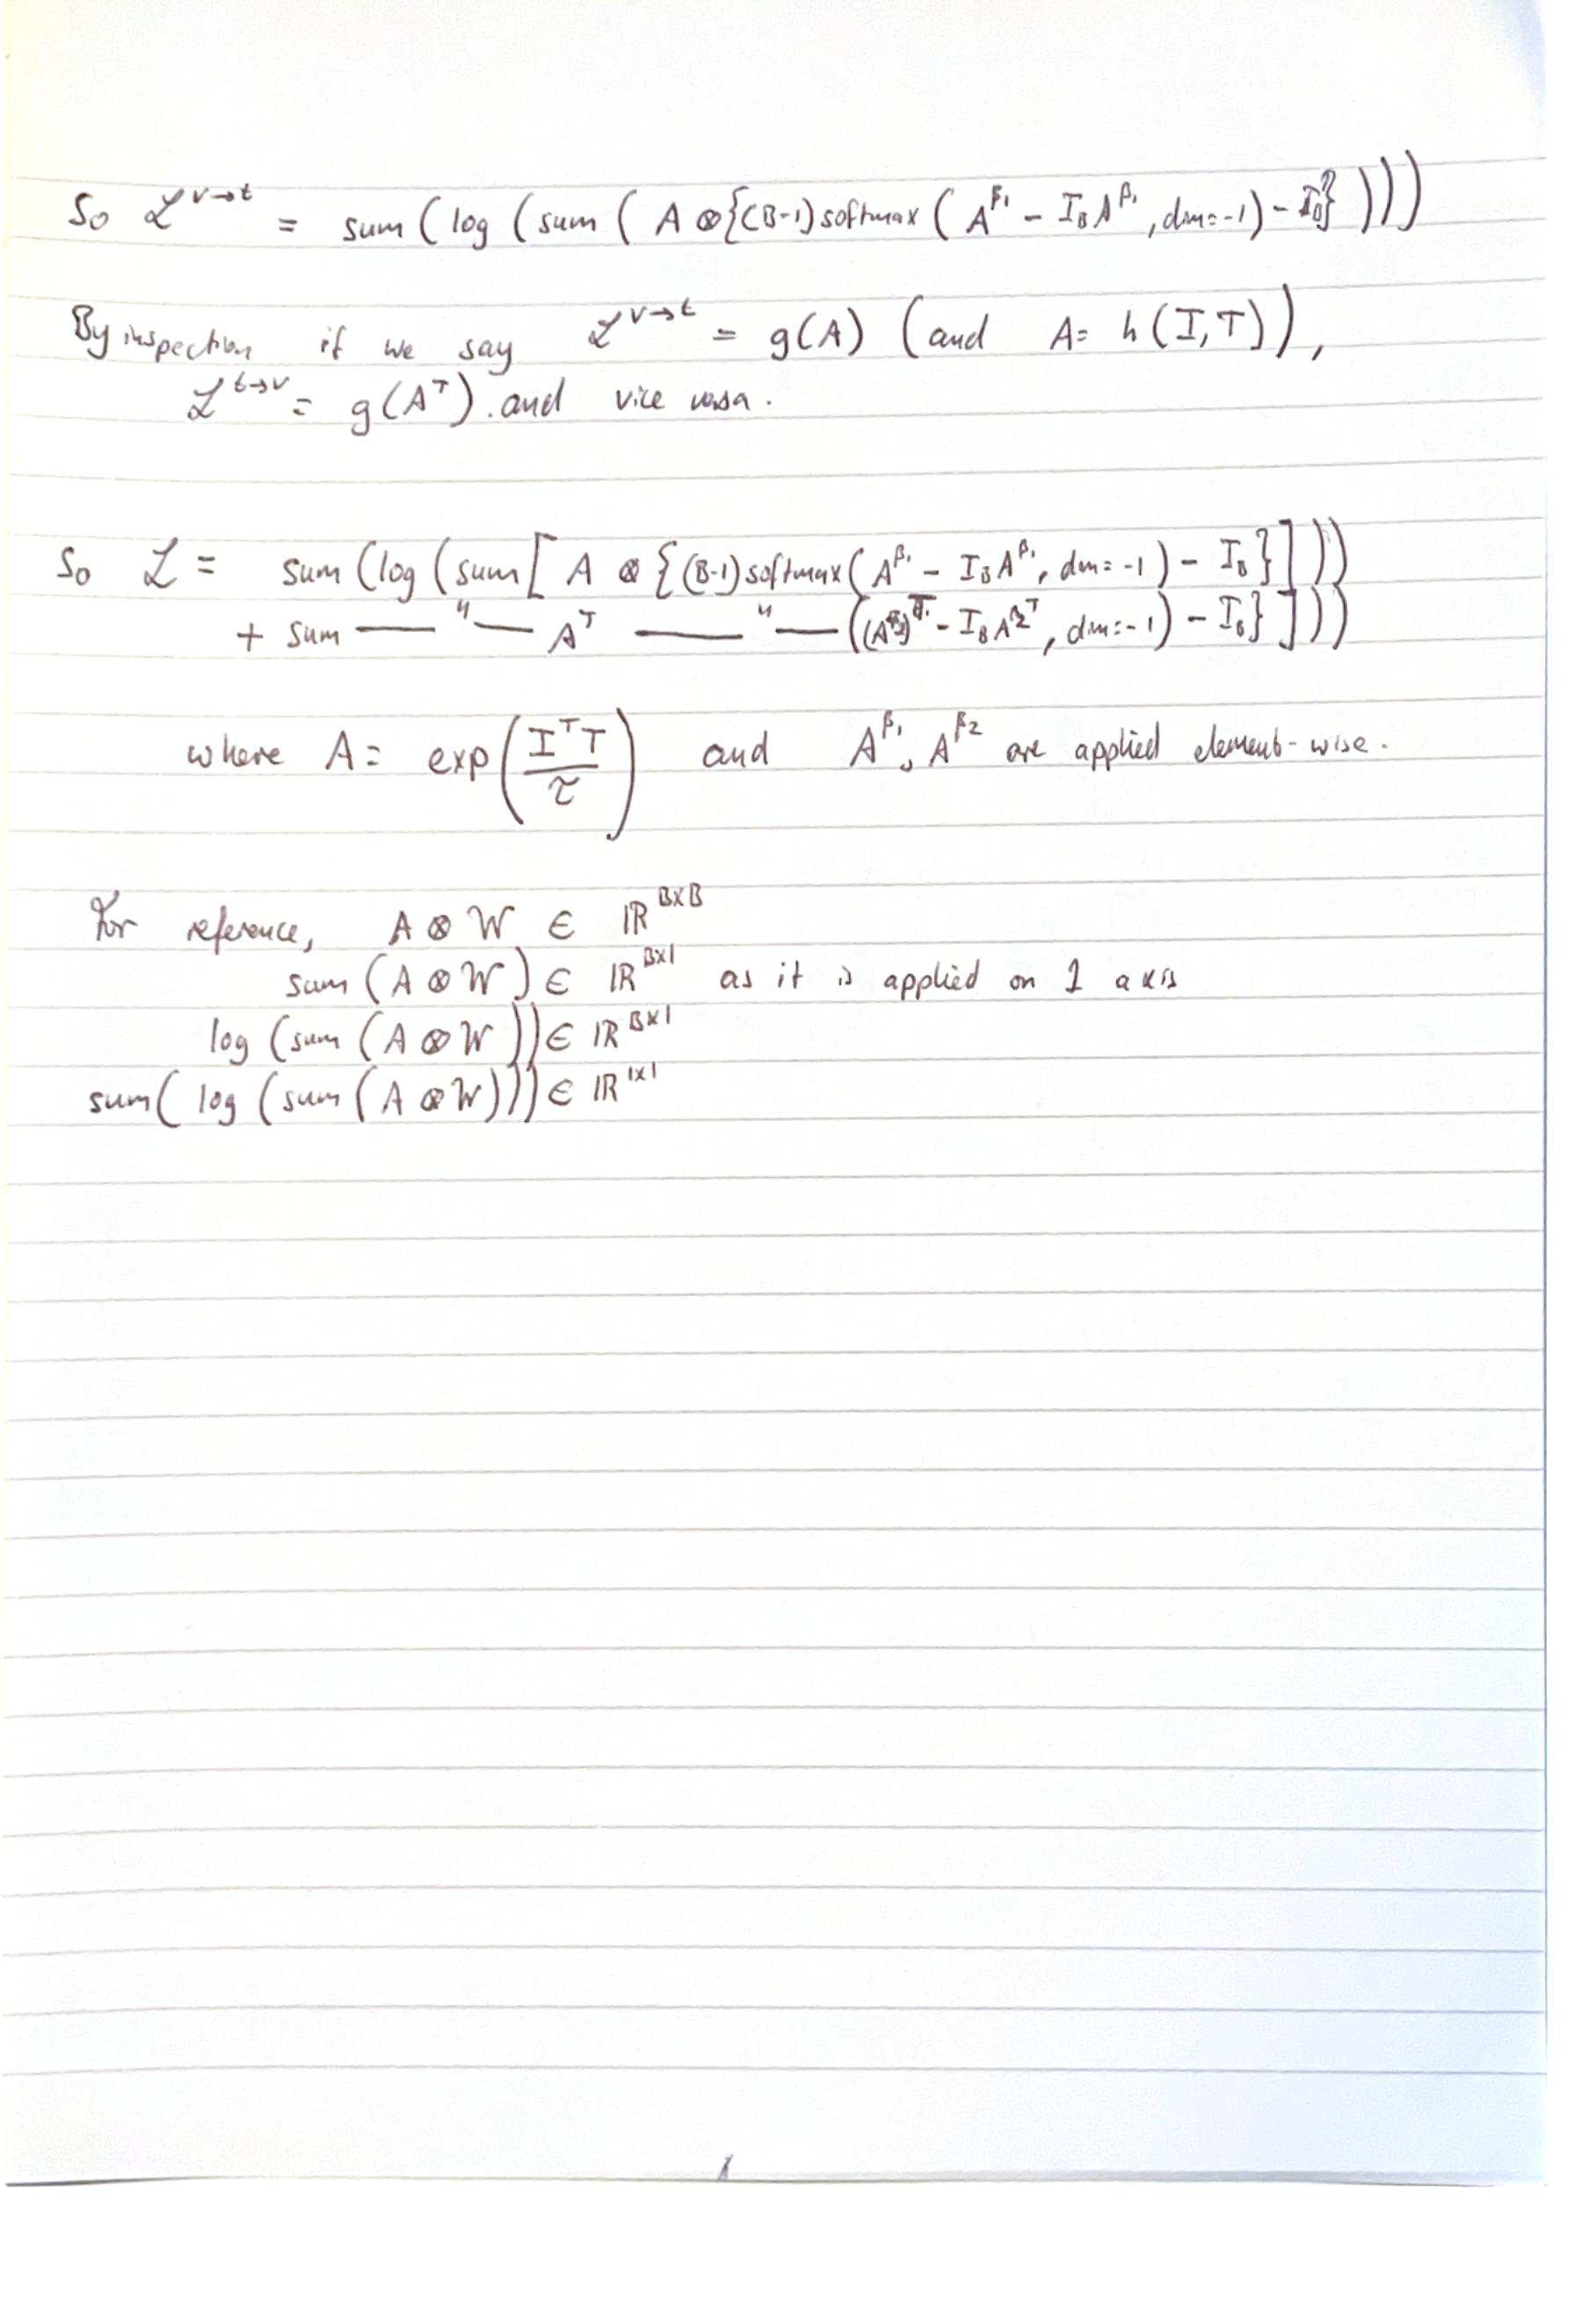 So ℒ^{v→t} = sum ( log ( sum ( A ⊗ {(B-1) softmax ( A^{β₁} - I_B A^{β₁} , dim=-1) - I_B} )))
By inspection if we say ℒ^{v→t} = g(A) (and A= h(I,T)),
ℒ^{t→v} = g(A^T). and vice versa.
So ℒ = sum (log (sum [ A ⊗ { (B-1) softmax ( A^{β₁} - I_B A^{β₁}, dim = -1 ) - I_B } ] ))
+ sum —— " —— A^T —— " —— ((A^{β₂})^T - I_B A^{β₂^T}, dim=-1) - I_B} ] ))
where A= exp( I^T T / τ ) and A^{β₁}, A^{β₂} are applied element-wise.
For reference, A ⊗ W ∈ ℝ^{B×B}
sum (A ⊗ W) ∈ ℝ^{B×1} as it is applied on 1 axis
log (sum (A ⊗ W)) ∈ ℝ^{B×1}
sum( log (sum (A ⊗ W))) ∈ ℝ^{1×1}